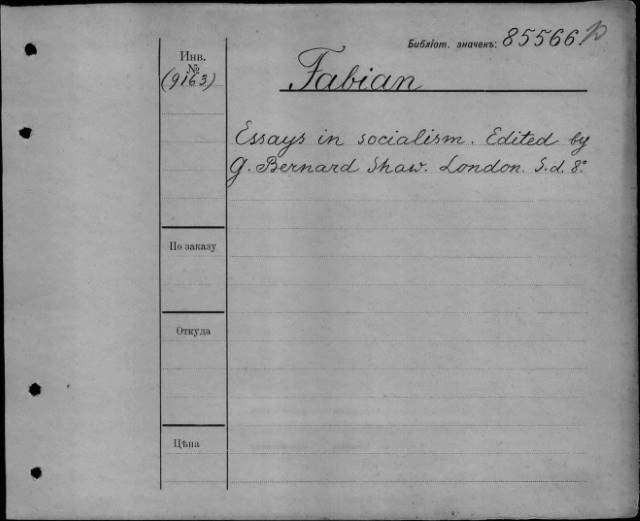 Библіот. значекъ: 85566
Инв.
№
(9163)
Fabian
Essays in socialism. Edited by
G. Bernard Shaw. London. S.d. 8°.
По заказу
Откуда
Цѣна